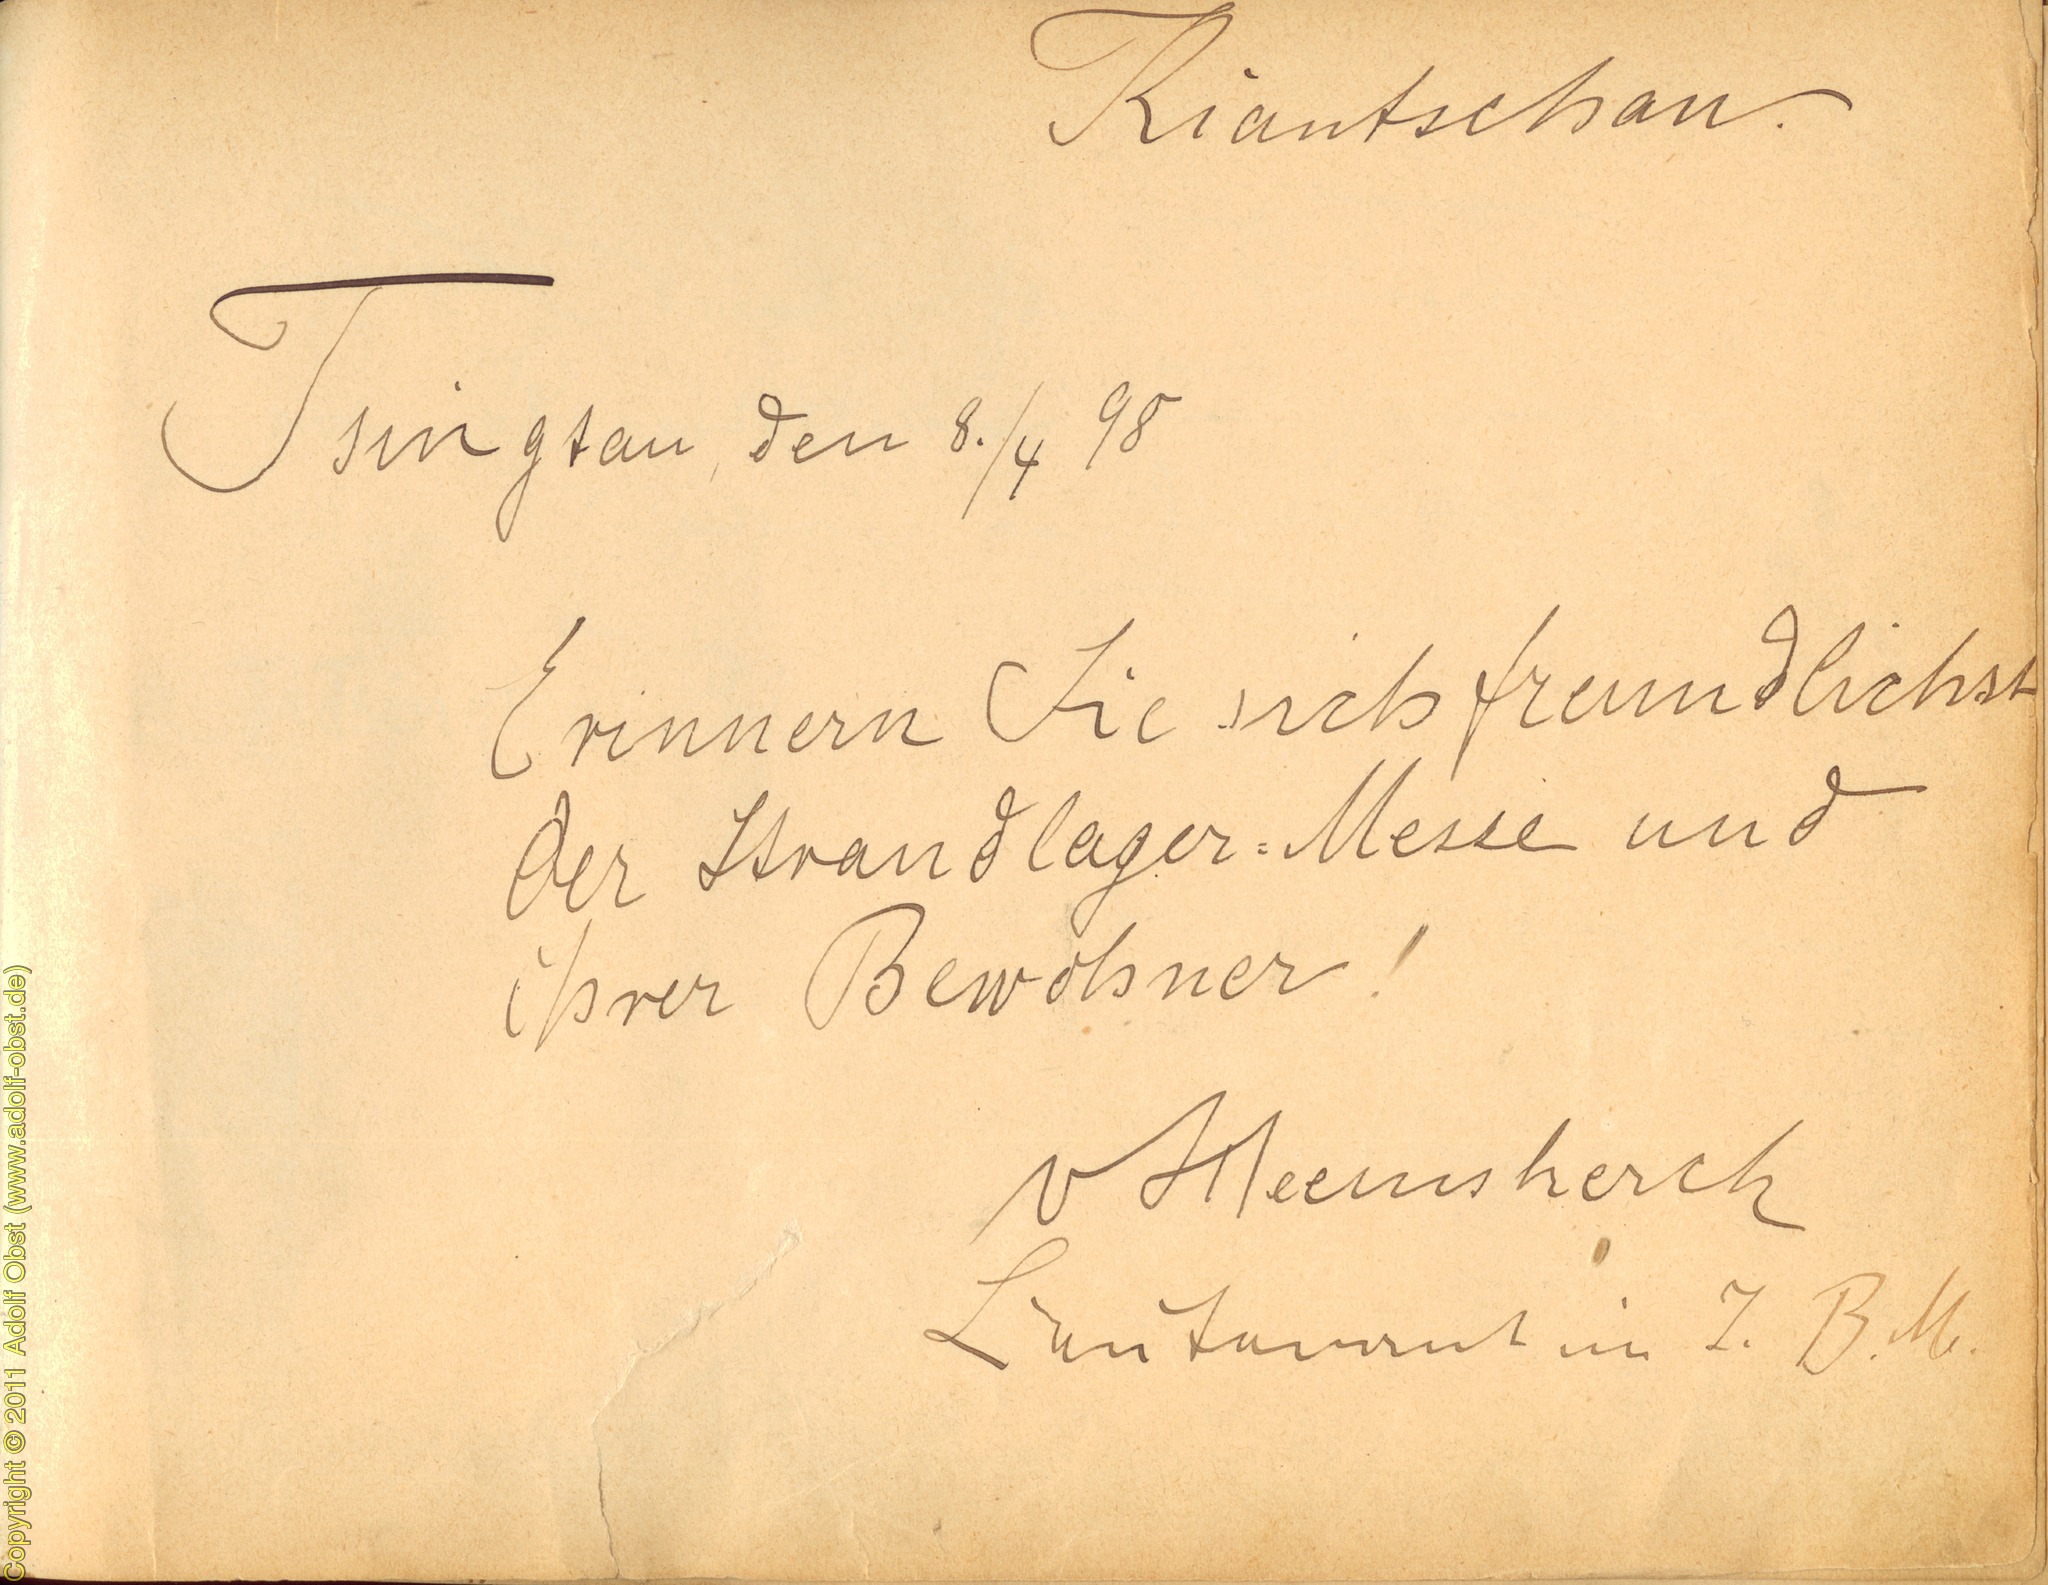 Kiautschau.
Tsingtau, den 8./4 98
Erinnern Sie sich freundlichst
der Strandlager-Messe und
ihrer Bewohner!
v Heemskerck
Lieutenant im I. B. M.
Copyright © 2011 Adolf Obst (www.adolf-obst.de)